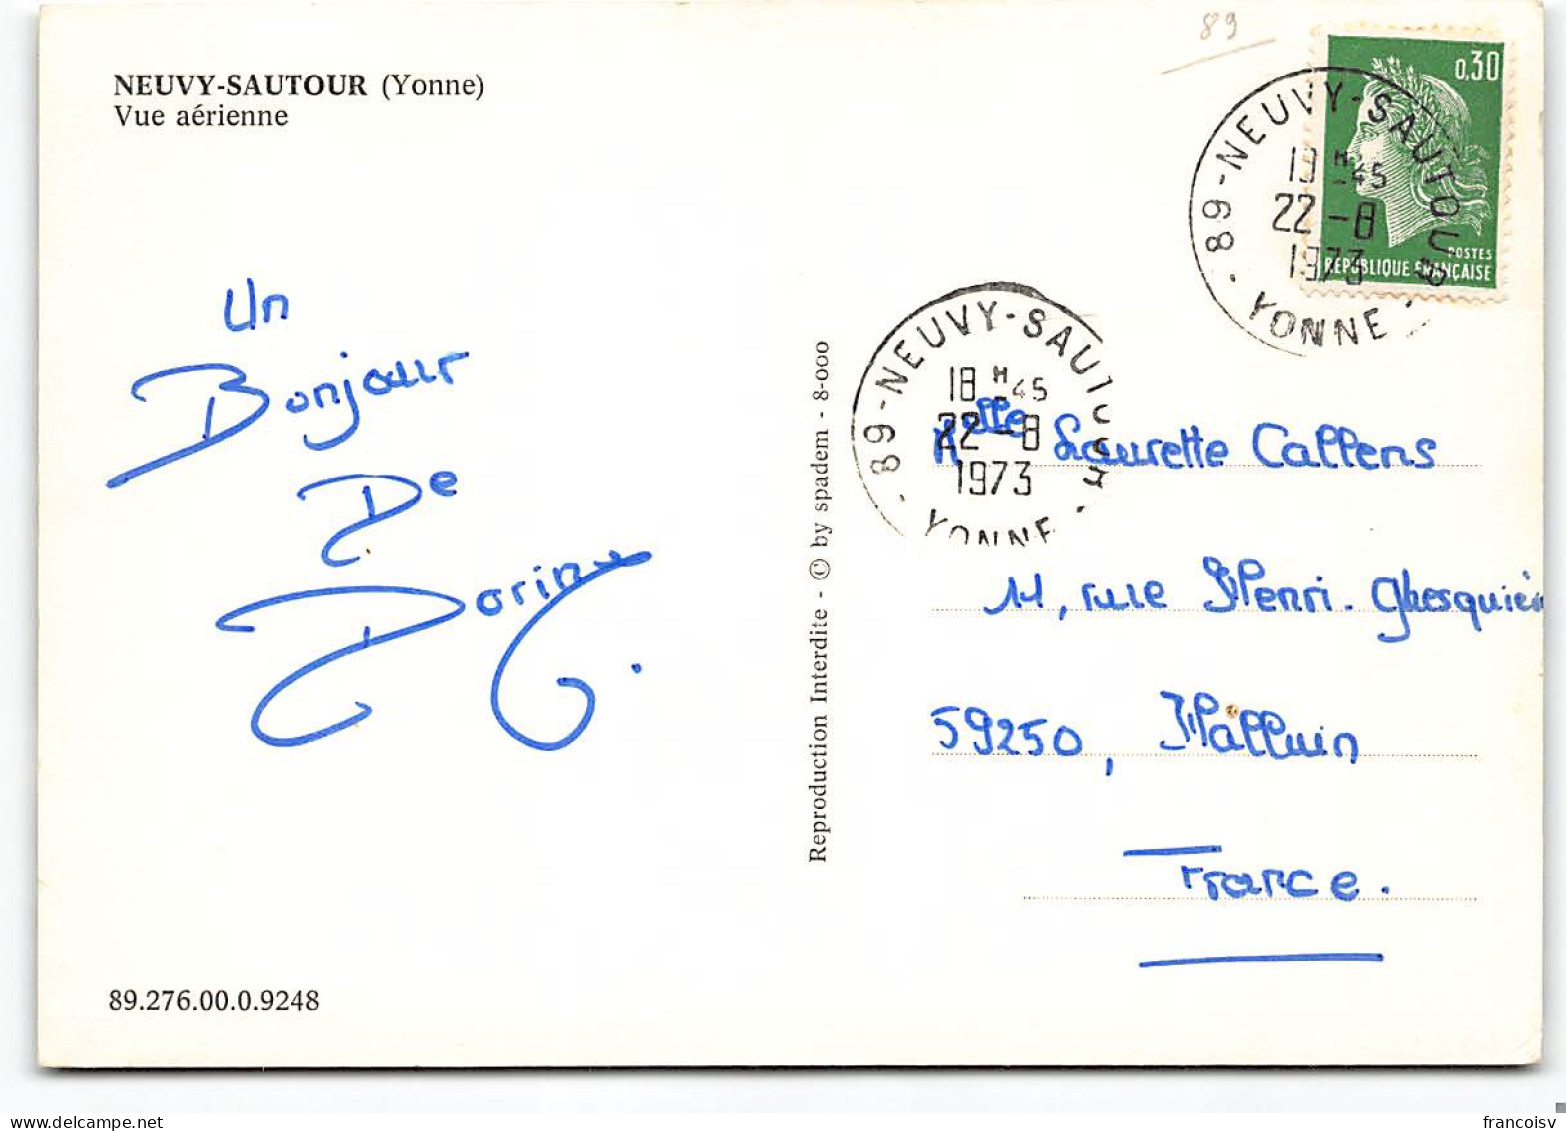 NEUVY-SAUTOUR (Yonne)
Vue aérienne
89
0,30
POSTES
RÉPUBLIQUE FRANÇAISE
89-NEUVY-SAUTOUR
18H45
22-8
1973
YONNE
89-NEUVY-SAUTOUR
18H45
22-8
1973
YONNE
Un
Bonjour
De
Dorine.
Reproduction Interdite - © by spadem - 8-000
Melle Laurette Callens
11, rue Henri. Ghesquièr
59250, Halluin
France.
89.276.00.0.9248
francoisv